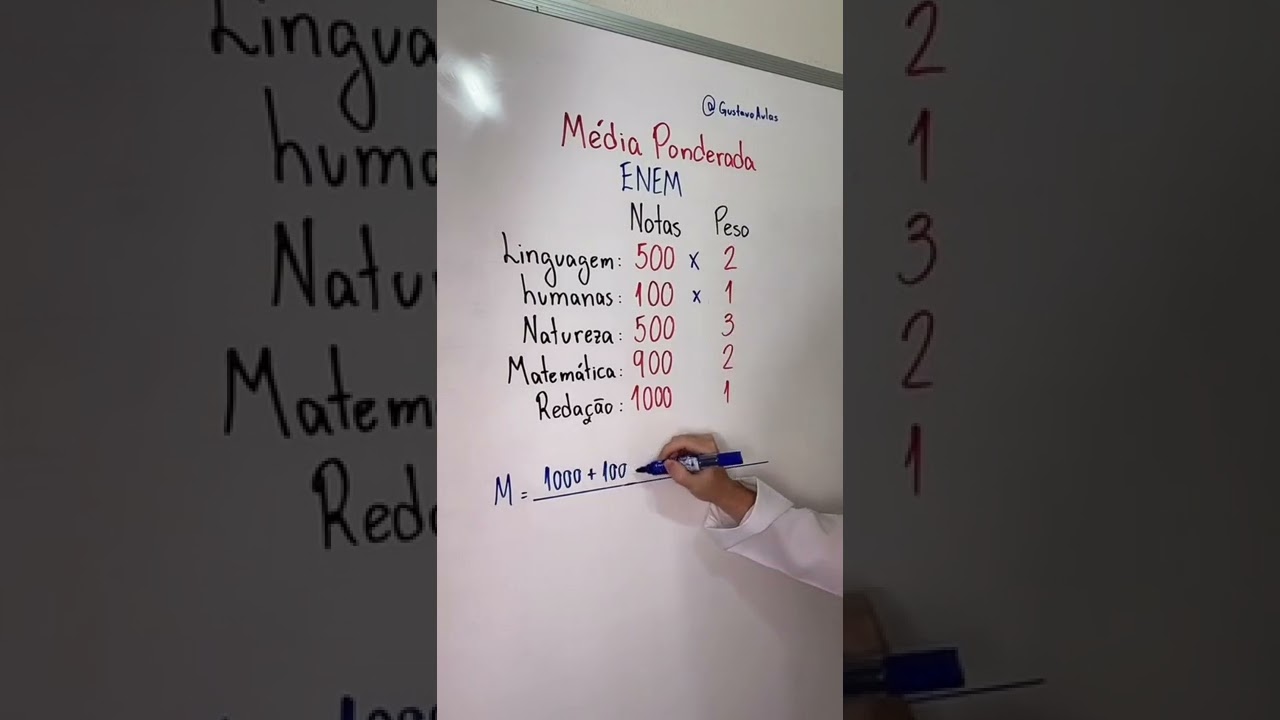 @GustavoAulas
Média Ponderada
ENEM
Notas Peso
Linguagem: 500 x 2
humanas: 100 x 1
Natureza: 500 3
Matemática: 900 2
Redação: 1000 1
M = 1000 + 100